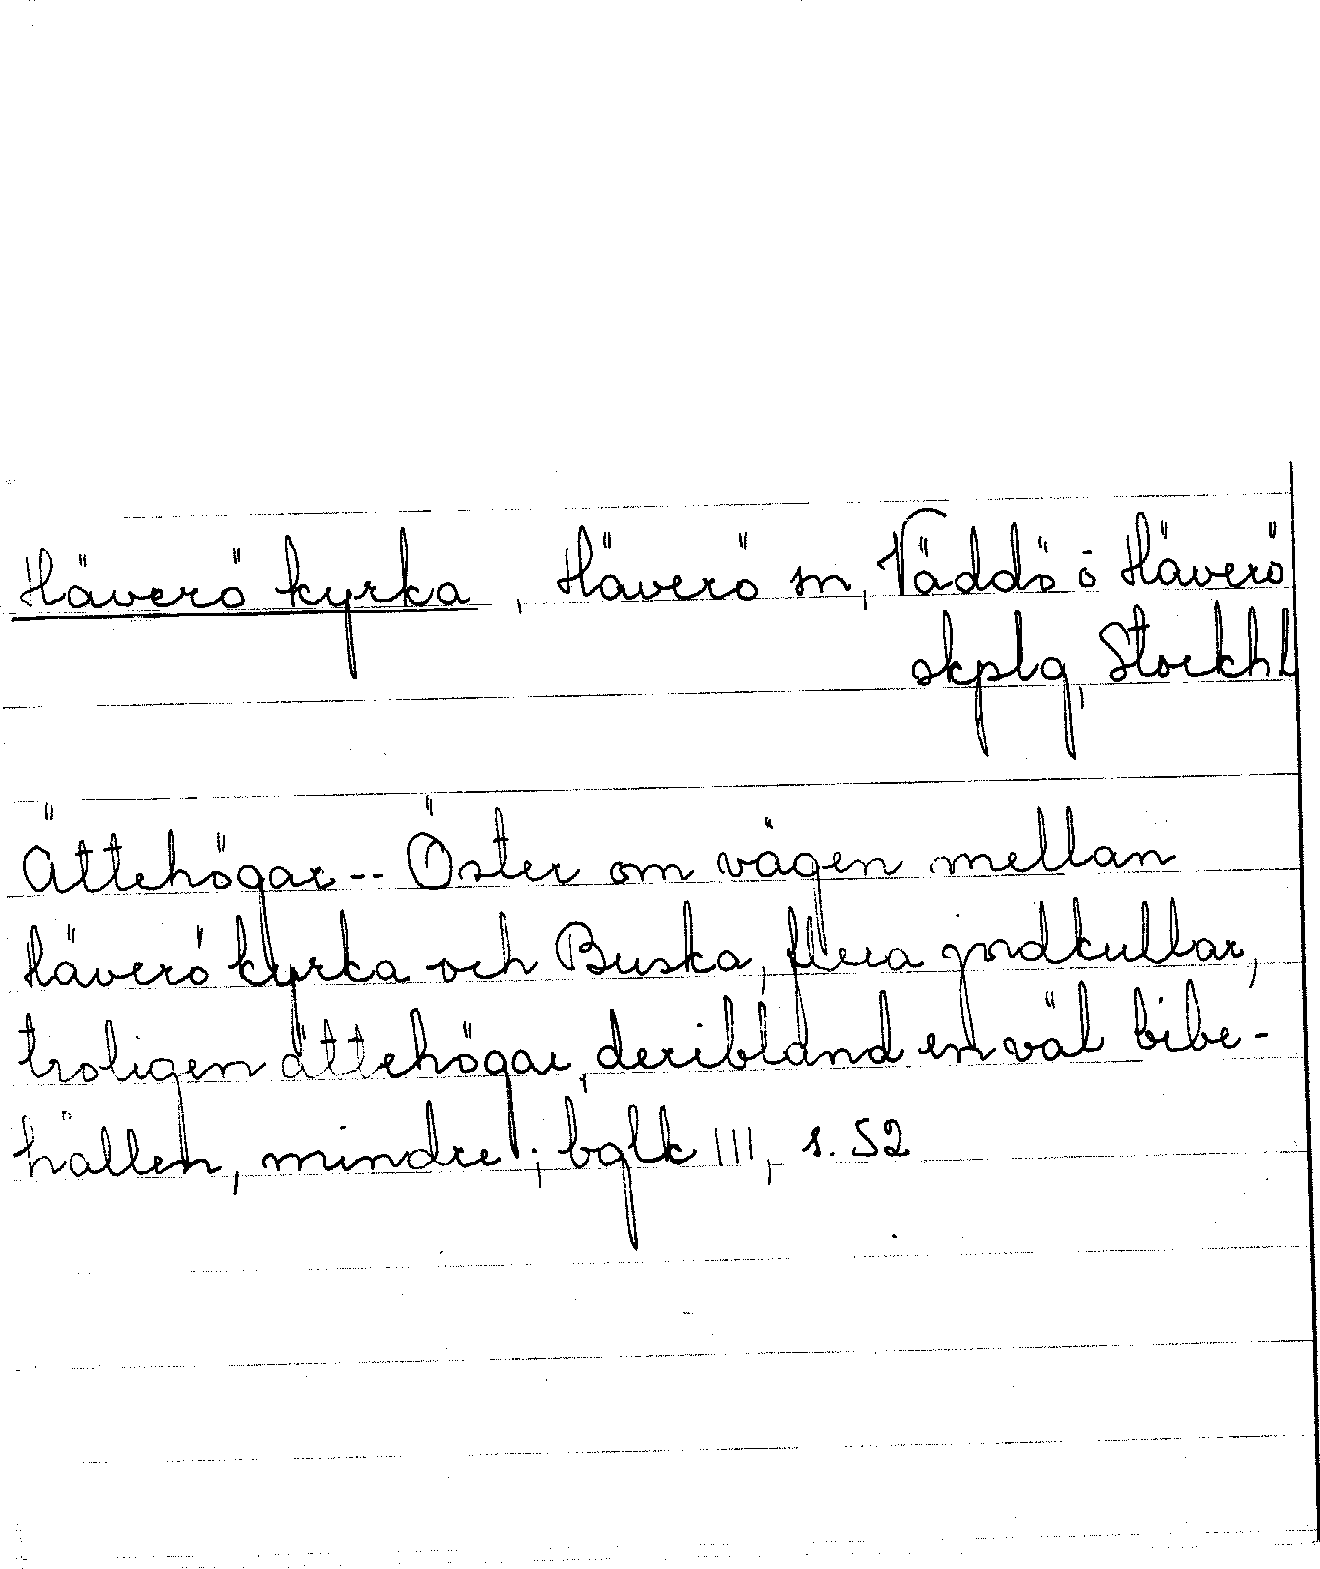 Häverö kyrka, Häverö sn, Väddö ö Häverö
skplg, Stockh L
Ättehögar -- Öster om vägen mellan
Häverö kyrka och Buska, flera jordkullar,
troligen ättehögar, deribland en väl bibe-
hållen, mindre; bglk III, s. 52